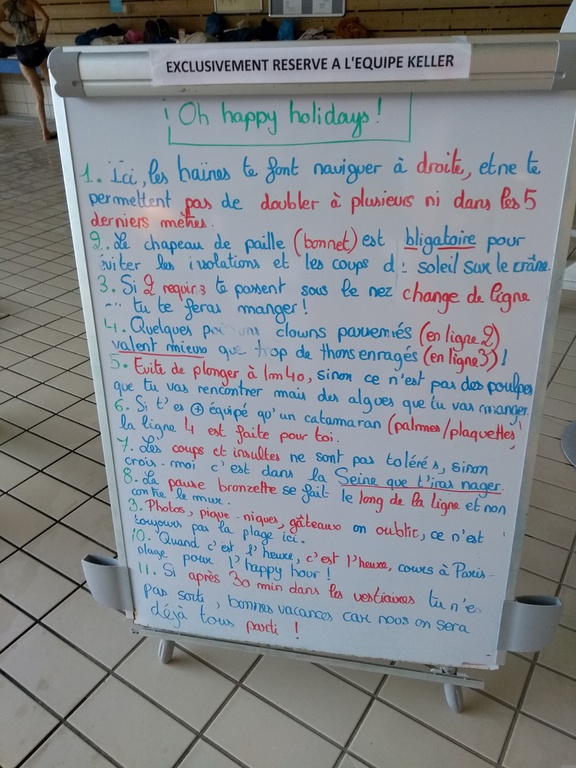 EXCLUSIVEMENT RESERVE A L'EQUIPE KELLER
¡ Oh happy holidays !
1. Ici, les haines te font naviguer à droite, et ne te
permettent pas de doubler à plusieurs ni dans les 5
derniers mètres.
2. Le chapeau de paille (bonnet) est bligatoire pour
viter les i solations et les coups d soleil sur le crâne.
3. Si 2 requi s te passent sous le nez change de ligne
tu te feras manger !
4. Quelques clowns parsemés (en ligne 2)
valent mieux que trop de thons enragés (en ligne 3) !
5. Evite de plonger à 1m40, sinon ce n'est pas des poulpes
que tu vas rencontrer mais des algues que tu vas manger.
6. Si t'es ⊕ équipé qu'un catamaran (palmes/plaquettes)
la ligne 4 est faite pour toi.
7. Les coups et insultes ne sont pas tolérés, sinon
crois-moi c'est dans la Seine que t'iras nager.
8. La pause bronzette se fait le long de la ligne et non
contre le mur.
9. Photos, pique-niques, gâteaux on oublie, ce n'est
toujours pas la plage ici.
10. Quand c'est l'heure, c'est l'heure, cours à Paris-
plage pour l'happy hour !
11. Si après 30 min dans les vestiaires tu n'es
pas sorti, bonnes vacances car nous on sera
déjà tous parti !